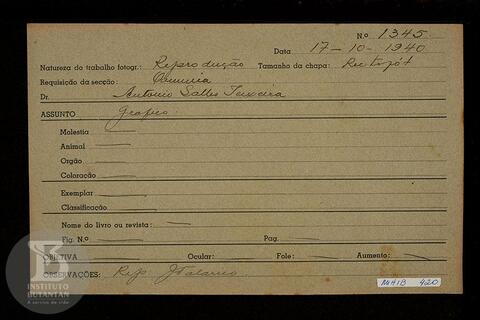 N.º 1345
Data 17-10-1940
Natureza do trabalho fotogr.: Reprodução Tamanho da chapa: Rectopót
Requisição da secção: Quimica
Dr. Antonio Salles Teixeira
ASSUNTO Grafico
Molestia
Animal
Orgão
Coloração
Exemplar
Classificação
Nome do livro ou revista:
Fig. N.º Pag.
OBJETIVA Ocular: Fole: Aumento:
OBSERVAÇÕES: Rep.
MHIB 420
INSTITUTO
BUTANTAN
A serviço da vida